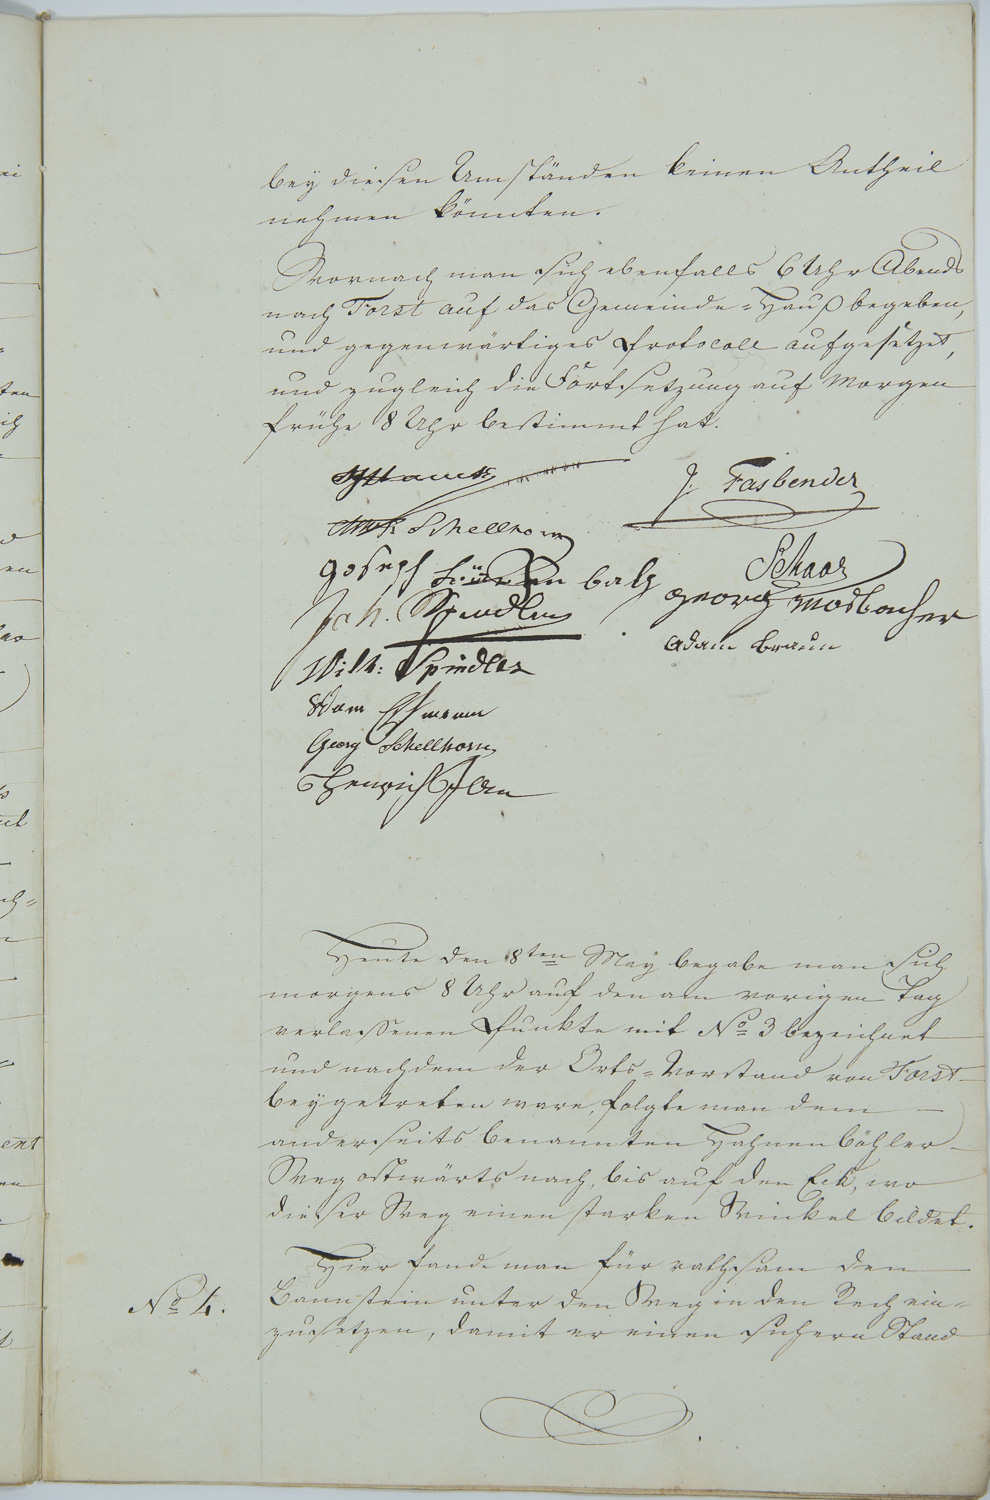 bey diesen Umständen keinen Antheil
nehmen könnten.
Wornach man sich ebenfalls 6 Uhr Abends
nach Forst auf das Gemeinde-Hauß begeben,
und gegenwärtiges Protocoll aufgesetzet,
und zugleich die Fortsetzung auf Morgen
frühe 8 Uhr bestimmt hat.
J. Fasbender
Schellhorn
Schaar
Joseph balz
Georg Mosbacher
Joh. Spindler
Adam Braun
Wilh: Spindler
Adam
Georg Schellhorn
Henrich
Heute den 8ten May begabe man sich
morgens 8 Uhr auf den am vorigen Tag
verlaßenen Punkte mit No 3 bezeichnet
und nachdem der Orts-Vorstand von Forst
beygetreten ware, folgte man dem
anderseits benannten Hahnenböhler
Weg ostwärts nach, bis auf den Eck, wo
dieser Weg einen starken Winkel bildet.
Hier fande man für rathsam den
No 4.
Bannstein unter den Weg in den Rech ein-
zusetzen, damit er einen sichern Stand